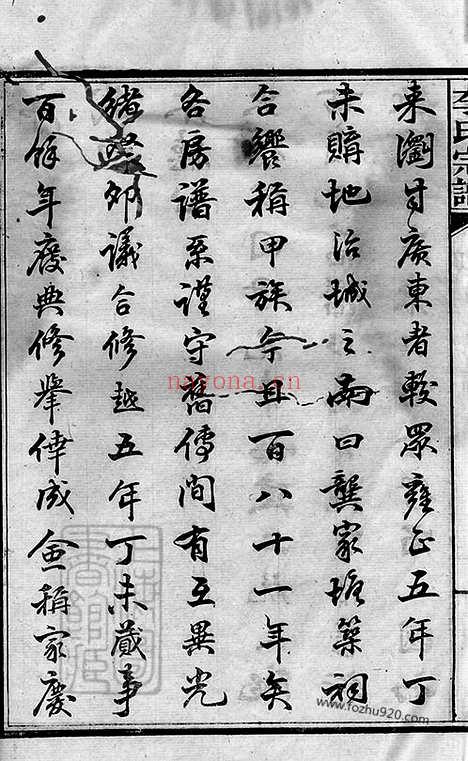 李氏宗譜
來瀏自廣東者較眾雍正五年丁
未購地治城之南曰龔家塘築祠
合饗稱甲族今且百八十一年矣
各房譜系謹守舊傳間有互異光
緒癸卯議合修越五年丁未蕆事
百餘年廢典修舉倖成僉稱家慶
nayona.cn
www.fozhu920.com